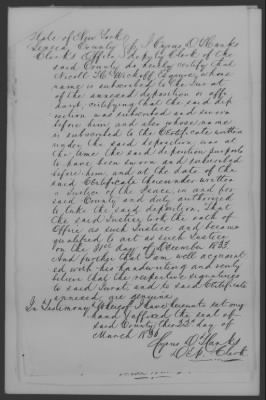 State of New York
Seneca County } I Cyrus D. Hanks
Clerk's Office } Deputy Clerk of the
said County do hereby certify that
Nicoll H. Wickoff Esquire, whose
name is subscribed to the Jurat
of the annexed deposition or affi-
davit, certifying that the said dep-
osition was subscribed and sworn
before him and also whose name
is subscribed to the Certificate written
under the said deposition, was at
the time the said deposition purports
to have been sworn and subscribed
before him, and at the date of the
said Certificate thereunder written
a Justice of the Peace, in and for
said County and duly authorized
to take the said deposition. That
the said Justice took the oath of
Office as such Justice and became
qualified to act as such Justice
on the 31st day of December 1833.
And further that I am well acquaint-
ed with his handwriting and verily
believe that the respective signatures
to said Jurat, and to said Certificate
annexed are genuine.
In Testimony Whereof I have hereunto set my
hand & affixed the seal of
said County, this 22d day of
March
Cyrus D. Hanks
Clerk